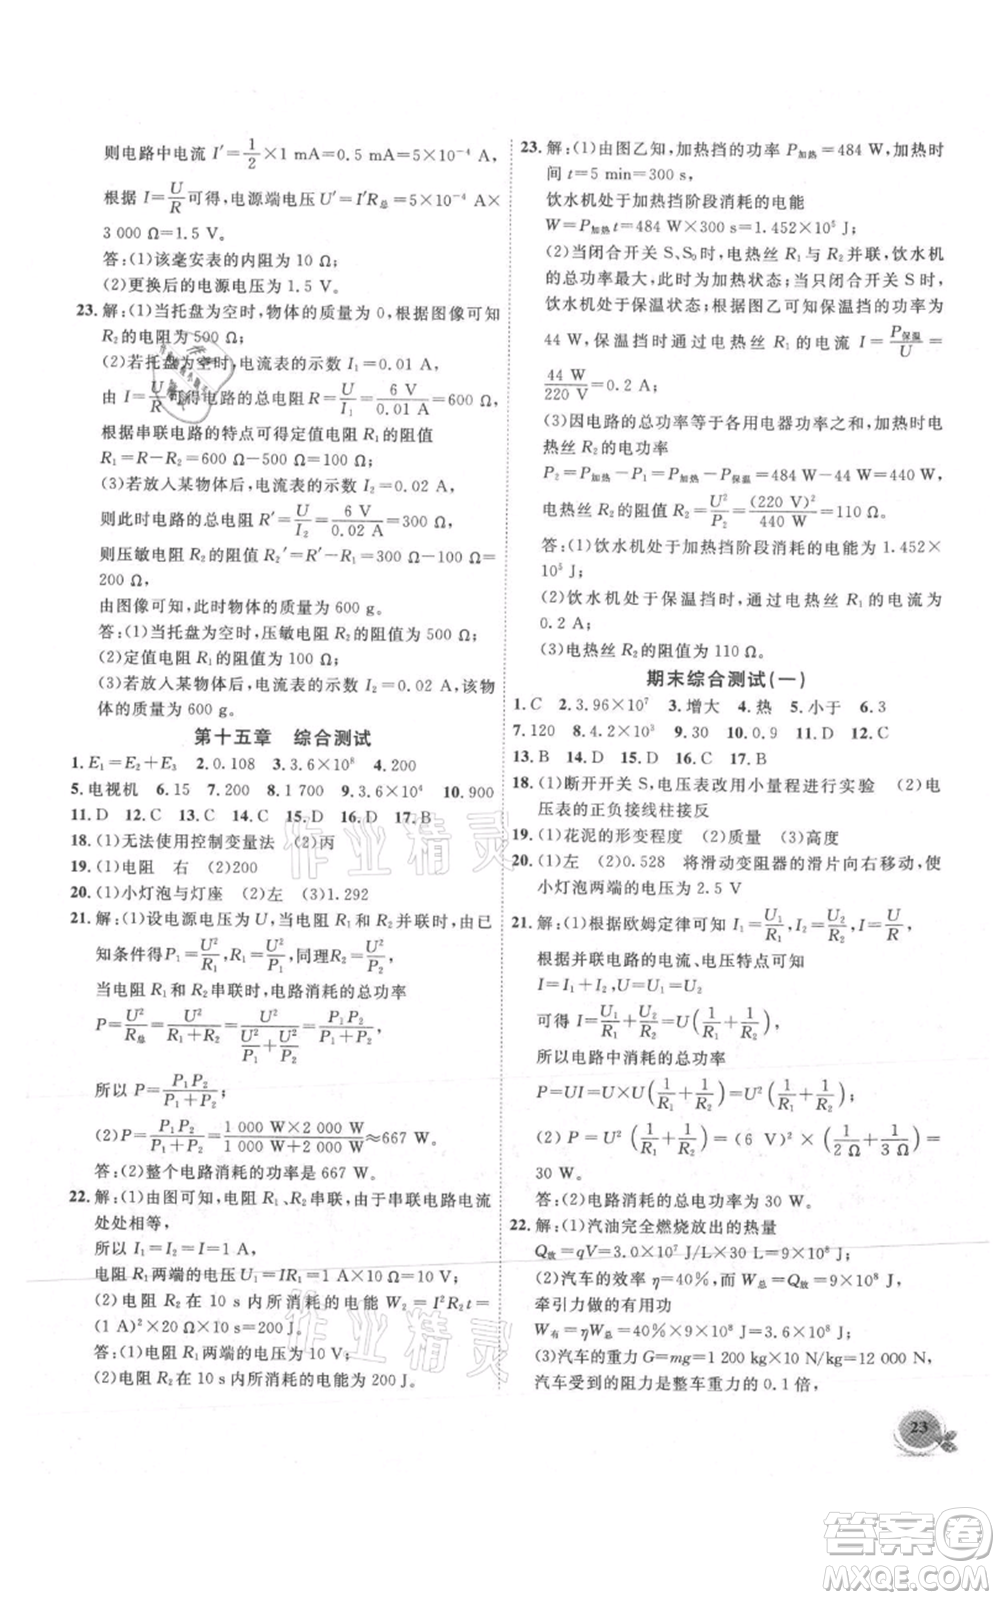 则电路中电流 I′=1/2×1 mA=0.5 mA=5×10⁻⁴ A,
根据 I=U/R可得,电源端电压 U′=I′R总=5×10⁻⁴ A×
3 000 Ω=1.5 V。
答:(1)该毫安表的内阻为 10 Ω;
(2)更换后的电源电压为 1.5 V。
23.解:(1)当托盘为空时,物体的质量为 0,根据图像可知
R₂的电阻为 500 Ω;
(2)若托盘为空时,电流表的示数 I₁=0.01 A,
由 I=U/R可得电路的总电阻 R=U/I₁=6 V/0.01 A=600 Ω,
根据串联电路的特点可得定值电阻 R₁的阻值
R₁=R−R₂=600 Ω−500 Ω=100 Ω;
(3)若放入某物体后,电流表的示数 I₂=0.02 A,
则此时电路的总电阻 R′=U/I₂=6 V/0.02 A=300 Ω,
则压敏电阻 R₂的阻值 R₂′=R′−R₁=300 Ω−100 Ω=
200 Ω,
由图像可知,此时物体的质量为 600 g。
答:(1)当托盘为空时,压敏电阻 R₂的阻值为 500 Ω;
(2)定值电阻 R₁的阻值为 100 Ω;
(3)若放入某物体后,电流表的示数 I₂=0.02 A,该物
体的质量为 600 g。
第十五章 综合测试
1.E₁=E₂+E₃ 2.0.108 3.3.6×10⁸ 4.200
5.电视机 6.15 7.200 8.1 700 9.3.6×10⁴ 10.900
11.D 12.C 13.C 14.C 15.D 16.D 17.B
18.(1)无法使用控制变量法 (2)丙
19.(1)电阻 右 (2)200
20.(1)小灯泡与灯座 (2)左 (3)1.292
21.解:(1)设电源电压为 U,当电阻 R₁和 R₂并联时,由已
知条件得P₁=U²/R₁,R₁=U²/P₁,同理R₂=U²/P₂,
当电阻 R₁和 R₂串联时,电路消耗的总功率
P=U²/R总=U²/(R₁+R₂)=U²/(U²/P₁+U²/P₂)=P₁P₂/(P₁+P₂),
所以 P=P₁P₂/(P₁+P₂);
(2)P=P₁P₂/(P₁+P₂)=(1 000 W×2 000 W)/(1 000 W+2 000 W)≈667 W。
答:(2)整个电路消耗的功率是 667 W。
22.解:(1)由图可知,电阻 R₁、R₂串联,由于串联电路电流
处处相等,
所以 I=I₁=I₂=1 A,
电阻 R₁两端的电压 U₁=IR₁=1 A×10 Ω=10 V;
(2)电阻 R₂在 10 s 内所消耗的电能 W₂=I²R₂t=
(1 A)²×20 Ω×10 s=200 J。
答:(1)电阻 R₁两端的电压为 10 V;
(2)电阻 R₂在 10 s 内消耗的电能为 200 J。
23.解:(1)由图乙知,加热挡的功率 P加热=484 W,加热时
间 t=5 min=300 s,
饮水机处于加热挡阶段消耗的电能
W=P加热t=484 W×300 s=1.452×10⁵ J;
(2)当闭合开关 S、S₀时,电热丝 R₁与 R₂并联,饮水机
的总功率最大,此时为加热状态;当只闭合开关 S 时,
饮水机处于保温状态;根据图乙可知保温挡的功率为
44 W,保温挡时通过电热丝 R₁的电流 I=P保温/U=
44 W/220 V=0.2 A;
(3)因电路的总功率等于各用电器功率之和,加热时电
热丝 R₂的电功率
P₂=P加热−P₁=P加热−P保温=484 W−44 W=440 W,
电热丝 R₂的阻值 R₂=U²/P₂=(220 V)²/440 W=110 Ω。
答:(1)饮水机处于加热挡阶段消耗的电能为 1.452×
10⁵ J;
(2)饮水机处于保温挡时,通过电热丝 R₁的电流为
0.2 A;
(3)电热丝 R₂的阻值为 110 Ω。
期末综合测试(一)
1.C 2.3.96×10⁷ 3.增大 4.热 5.小于 6.3
7.120 8.4.2×10⁵ 9.30 10.0.9 11.D 12.C
13.B 14.D 15.D 16.C 17.B
18.(1)断开开关 S,电压表改用小量程进行实验 (2)电
压表的正负接线柱接反
19.(1)花泥的形变程度 (2)质量 (3)高度
20.(1)左 (2)0.528 将滑动变阻器的滑片向右移动,使
小灯泡两端的电压为 2.5 V
21.解:(1)根据欧姆定律可知 I₁=U₁/R₁,I₂=U₂/R₂,I=U/R,
根据并联电路的电流、电压特点可知
I=I₁+I₂,U=U₁=U₂
可得 I=U₁/R₁+U₂/R₂=U(1/R₁+1/R₂),
所以电路中消耗的总功率
P=UI=U×U(1/R₁+1/R₂)=U²(1/R₁+1/R₂);
(2) P=U²(1/R₁+1/R₂)=(6 V)²×(1/2 Ω+1/3 Ω)=
30 W。
答:(2)电路消耗的总电功率为 30 W。
22.解:(1)汽油完全燃烧放出的热量
Q放=qV=3.0×10⁷ J/L×30 L=9×10⁸ J;
(2)汽车的效率 η=40%,而 W总=Q放=9×10⁸ J,
牵引力做的有用功
W有=ηW总=40%×9×10⁸ J=3.6×10⁸ J;
(3)汽车的重力 G=mg=1 200 kg×10 N/kg=12 000 N,
汽车受到的阻力是整车重力的 0.1 倍,
23
作业精灵
作业精灵
答案圈
MXQE.COM